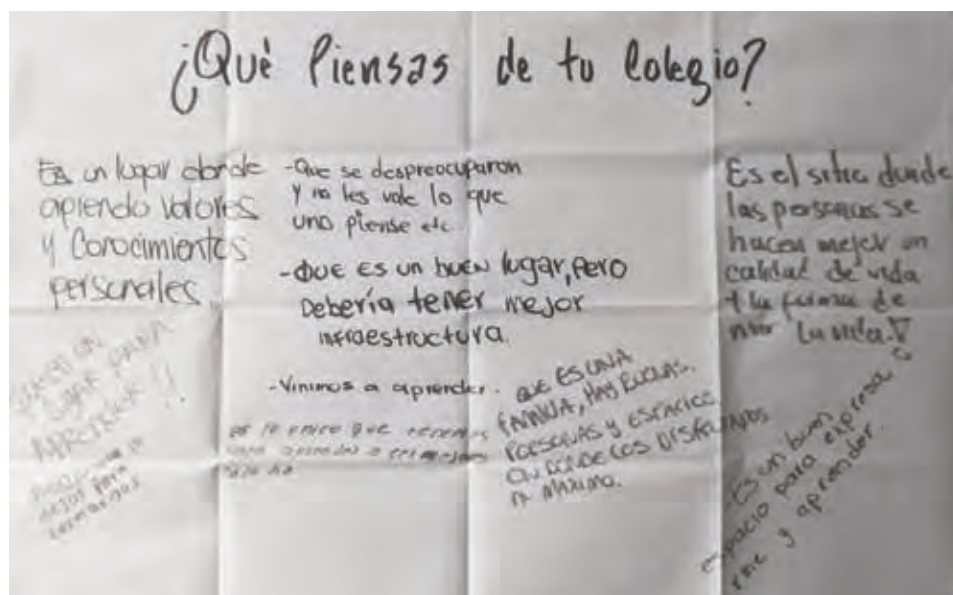 ¿Qué Piensas de tu Colegio?
Es un lugar donde
aprendo valores
y Conocimientos
personales.
-Que se despreocuparon
y no les vale lo que
uno piense etc.
-QUE ES UN BUEN lugar, pero
Debería tener mejor
infraestructura.
-Vinimos a aprender.
es lo unico que tenemos
para aprender a ser mejores
LUGAR PARA
APRENDER!!
QUE ES UNA
FAMILIA, HAY BUENAS
PERSONAS Y ESPACIOS
EN DONDE LOS DISFRUTAMOS
AL MAXIMO.
Es el sitio donde
las personas se
hacen mejor en
calidad de vida
y la forma de
vivir la vida.
-Es un buen
espacio para expresa
rme y aprender.